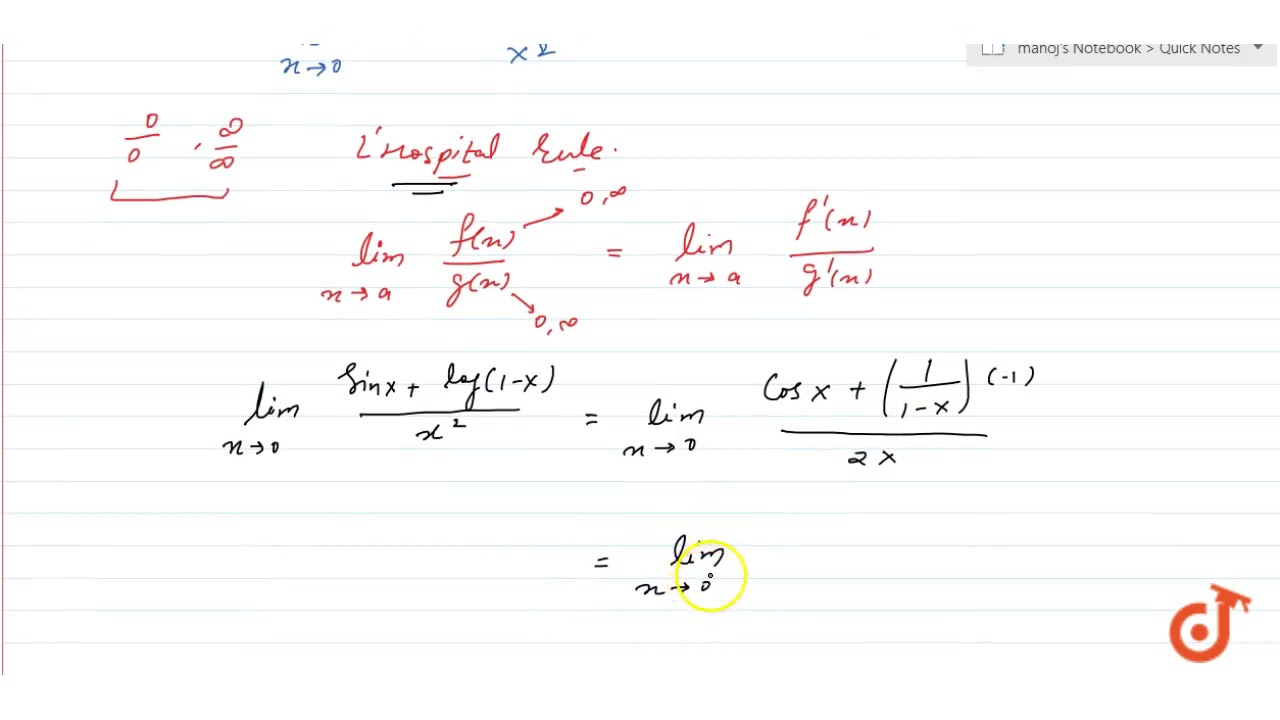 manoj's Notebook > Quick Notes
x→0 x²
0/0 , ∞/∞ L'Hospital Rule.
lim x→a f(x)/g(x) → 0, ∞ → 0, ∞ = lim x→a f'(x)/g'(x)
lim x→0 (sinx + log(1-x))/x² = lim x→0 (cosx + (1/(1-x))(-1))/2x
= lim x→0